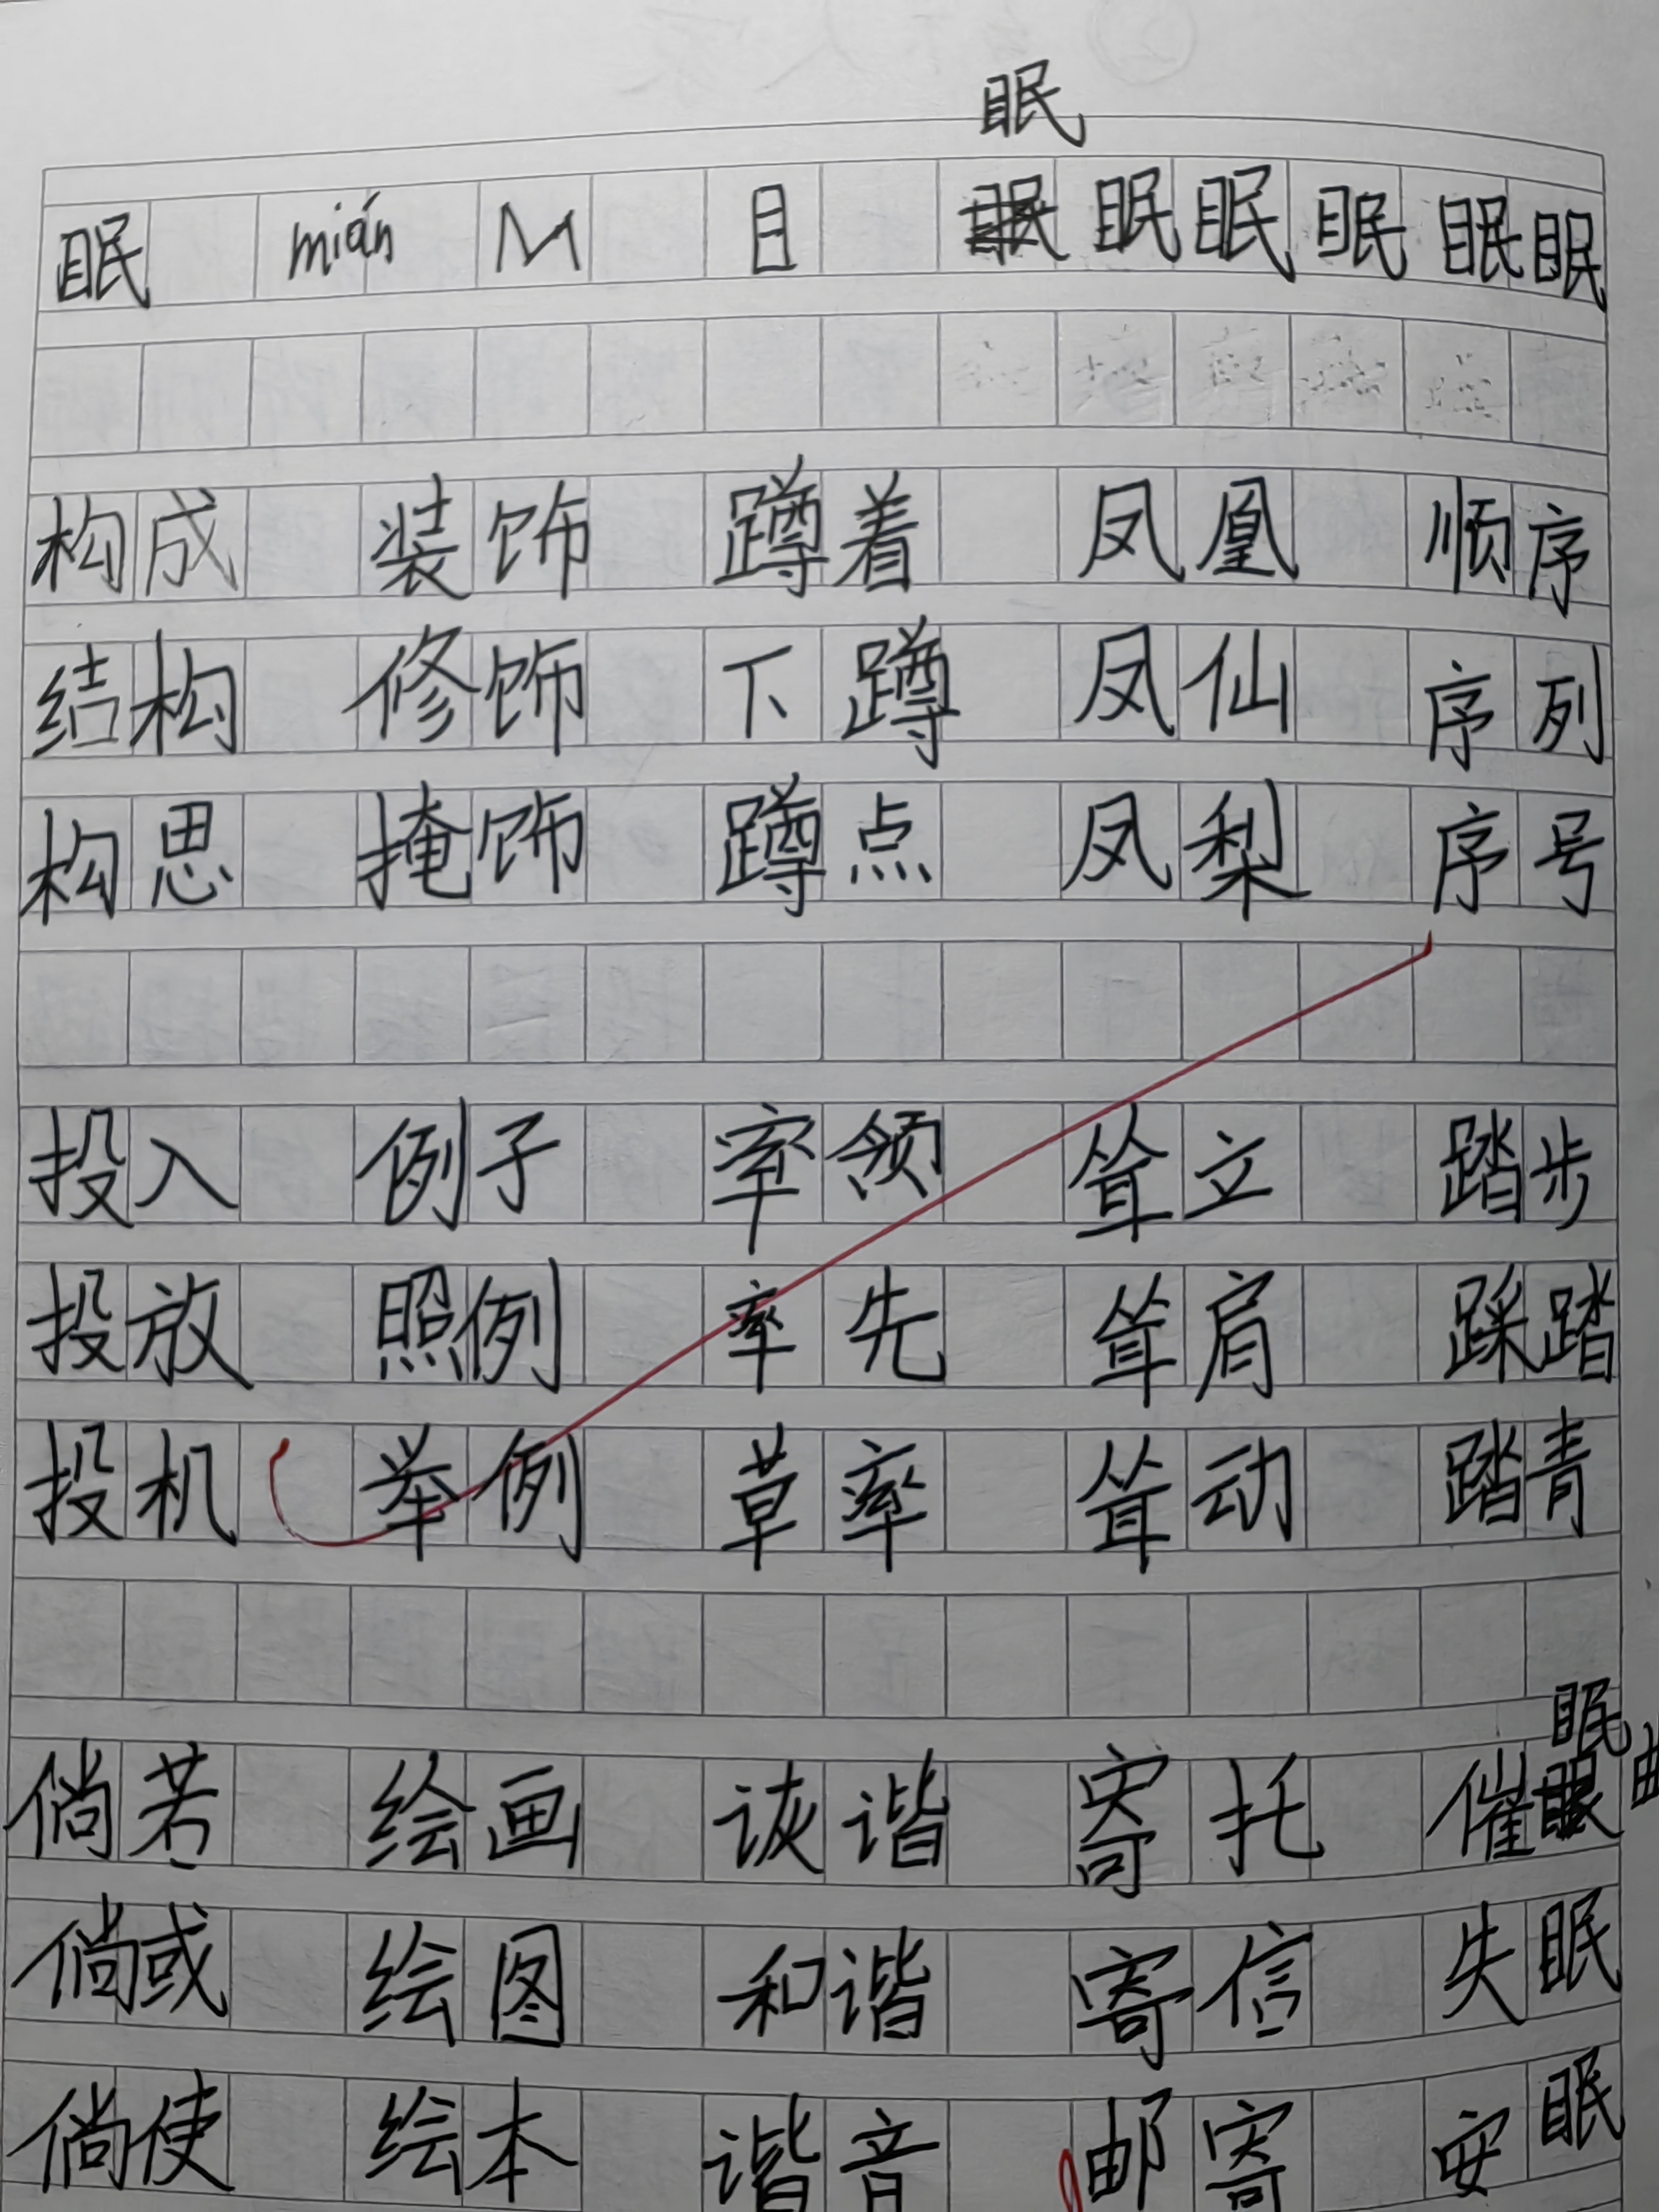 眠
眠 mián M 目 眠 眠 眠 眠 眠
构成 装饰 蹲着 凤凰 顺序
结构 修饰 下蹲 凤仙 序列
构思 掩饰 蹲点 凤梨 序号
投入 例子 率领 耸立 踏步
投放 照例 率先 耸肩 踩踏
投机 举例 草率 耸动 踏青
眠
倘若 绘画 诙谐 寄托 催 曲
倘或 绘图 和谐 寄信 失眠
倘使 绘本 谐音 邮寄 安眠